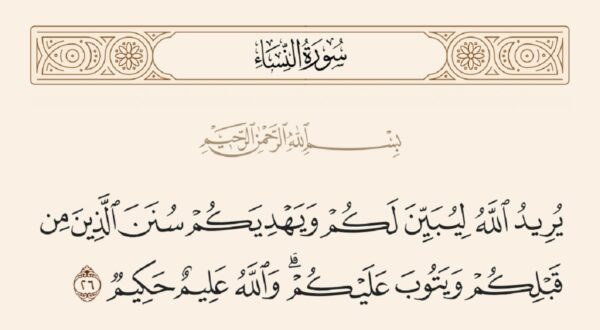 سُورَةُ النِّسَاءِ
بِسْمِ اللَّهِ الرَّحْمَٰنِ الرَّحِيمِ
يُرِيدُ ٱللَّهُ لِيُبَيِّنَ لَكُمْ وَيَهْدِيَكُمْ سُنَنَ ٱلَّذِينَ مِن
قَبْلِكُمْ وَيَتُوبَ عَلَيْكُمْ ۗ وَٱللَّهُ عَلِيمٌ حَكِيمٌ ٢٦